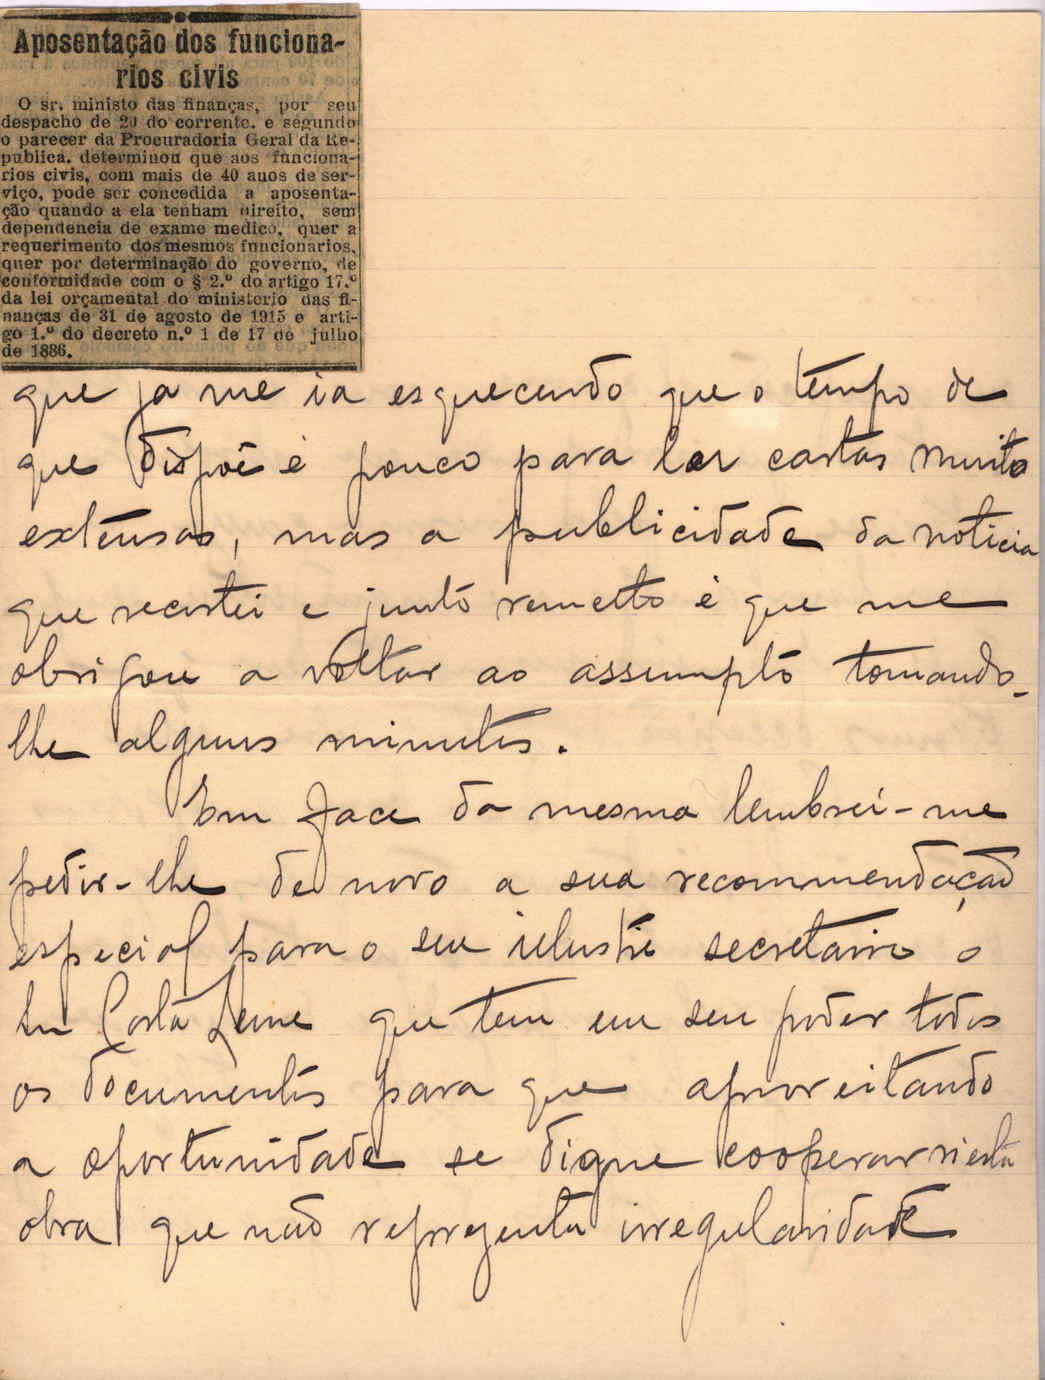 Aposentação dos funciona-
rios civis
O sr. ministo das finanças, por seu
despacho de 20 do corrente, e segundo
o parecer da Procuradoria Geral da Re-
publica, determinou que aos funciona-
rios civis, com mais de 40 anos de ser-
viço, pode ser concedida a aposenta-
ção quando a ela tenham direito, sem
dependencia de exame medico, quer a
requerimento dos mesmos funcionarios,
quer por determinação do governo, de
conformidade com o § 2.º do artigo 17.º
da lei orçamental do ministerio das fi-
nanças de 31 de agosto de 1915 e arti-
go 1.º do decreto n.º 1 de 17 de julho
de 1886.
que ja me ia esquecendo que o tempo de
que dispõe é pouco para ler cartas muito
extensas, mas a publicidade da noticia
que recortei e junto remetto é que me
obrigou a voltar ao assumpto tomando-
lhe alguns minutos.
Em face da mesma lembrei-me
pedir-lhe de novo a sua recommendação
especial para o seu illustre secretario o
Snr Costa Leme que tem em seu poder todos
os documentos para que aproveitando
a oportunidade se digne cooperar n'esta
obra que não reprezenta irregularidade